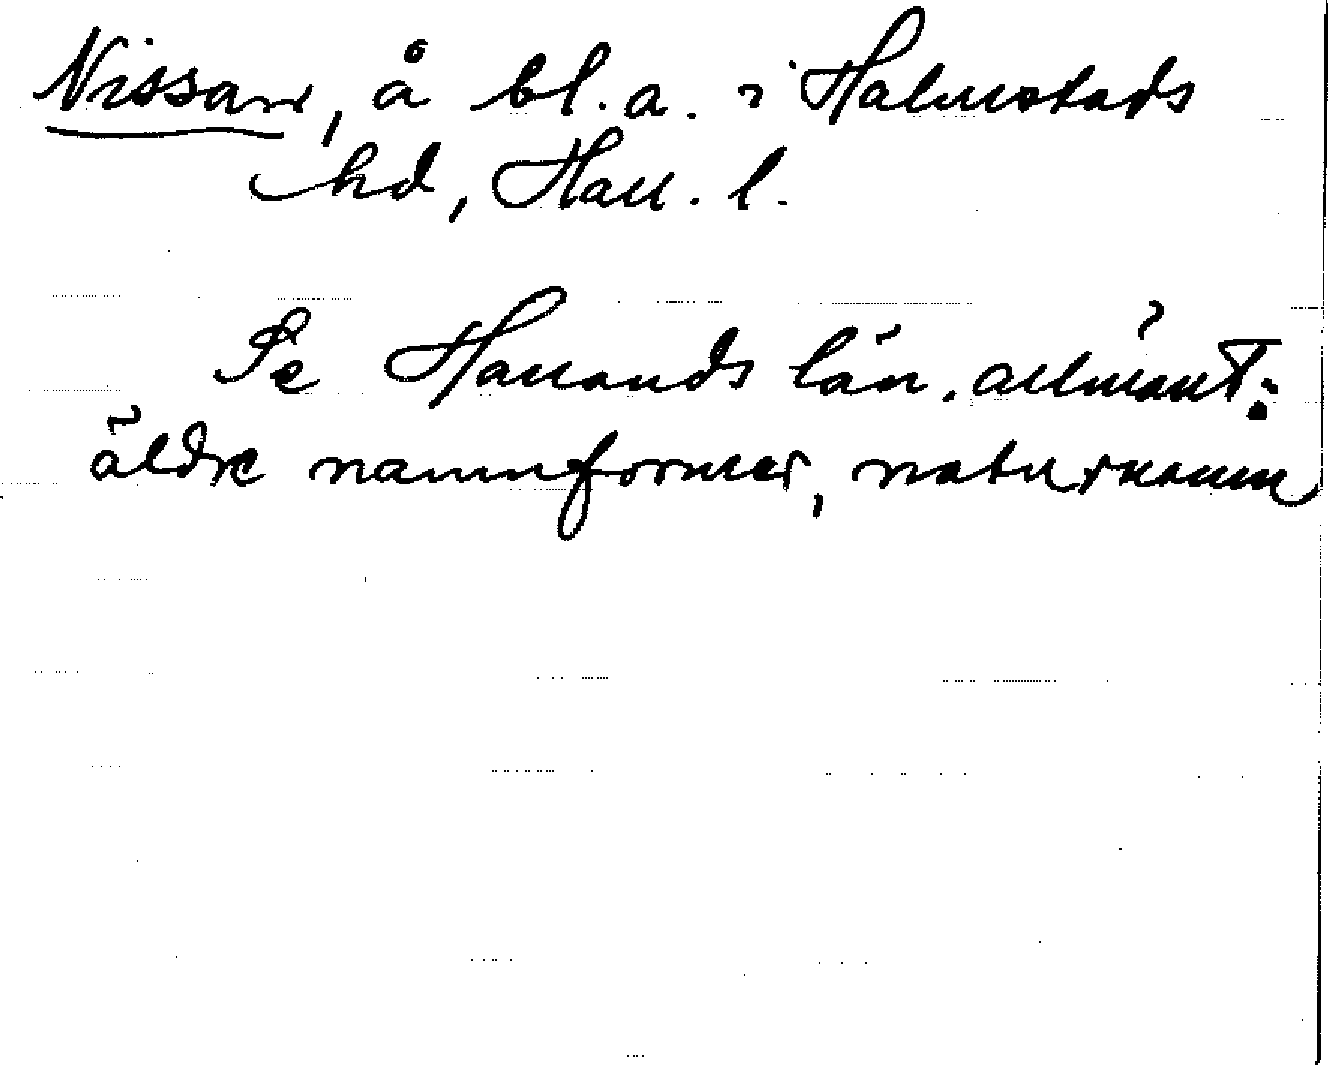 Nissan, å bl. a. i Halmstads
hd, Hall. l.
Se Hallands län, allmänt:
äldre namnformer, naturnamn